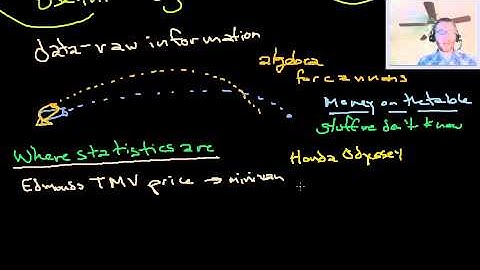 data-raw information
algebra
for cannons
Money on the table
stuff we don't know
Where statistics are
Honda Odyssey
Edmunds TMV price → minivan